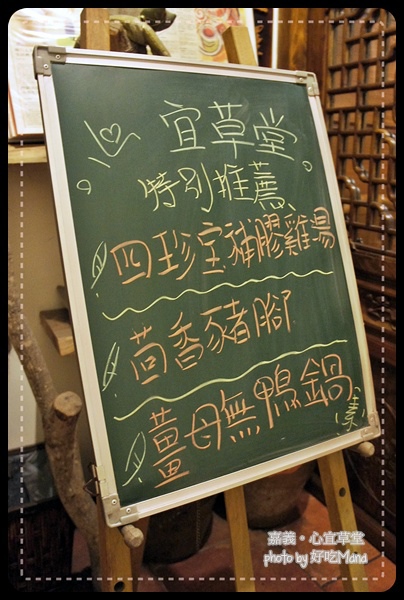 宜草堂
特別推薦
四珍宝補膠雞湯
茴香豬腳
薑母無鴨鍋
(素)
嘉義。心宜草堂
photo by 好吃Mana